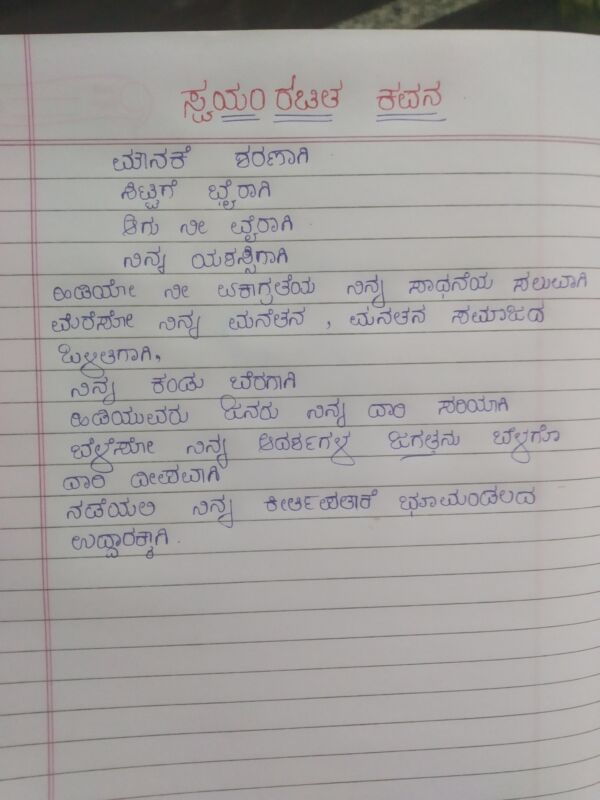 ಸ್ವಯಂ ರಚಿತ ಕವನ
ಮೌನಕೆ ಶರಣಾಗಿ
ಸಿಟ್ಟಿಗೆ ಭೈರಾಗಿ
ಆಗು ನೀ ವೈರಾಗಿ
ನಿನ್ನ ಯಶಸ್ಸಿಗಾಗಿ
ಹಿಡಿಯೋ ನೀ ಏಕಾಗ್ರತೆಯ ನಿನ್ನ ಸಾಧನೆಯ ಸಲುವಾಗಿ
ಮೆರೆಸೋ ನಿನ್ನ ಮನೆತನ , ಮನತನ ಸಮಾಜದ
ಒಳಿತಿಗಾಗಿ,
ನಿನ್ನ ಕಂಡು ಬೆರಗಾಗಿ
ಹಿಡಿಯುವರು ಜನರು ನಿನ್ನ ದಾರಿ ಸರಿಯಾಗಿ
ಬೆಳೆಸೋ ನಿನ್ನ ಆದರ್ಶಗಳ ಜಗತ್ತನು ಬೆಳಗೊ
ದಾರಿ ದೀಪವಾಗಿ
ನಡೆಯಲಿ ನಿನ್ನ ಕೀರ್ತಿಪತಾಕೆ ಭೂಮಂಡಲದ
ಉದ್ಧಾರಕ್ಕಾಗಿ.